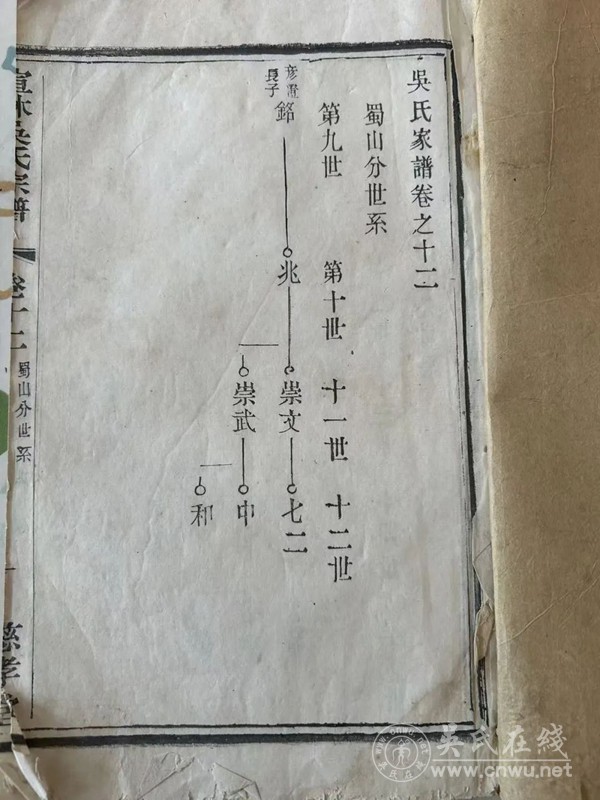 吳氏家譜卷之十二
蜀山分世系
第九世 第十世 十一世 十二世
彦澄長子 銘 兆 崇文 七二
崇武 中
和
吳氏宗譜 卷十二 蜀山分世系 一 慈孝堂
吴氏在线
www.cnwu.net